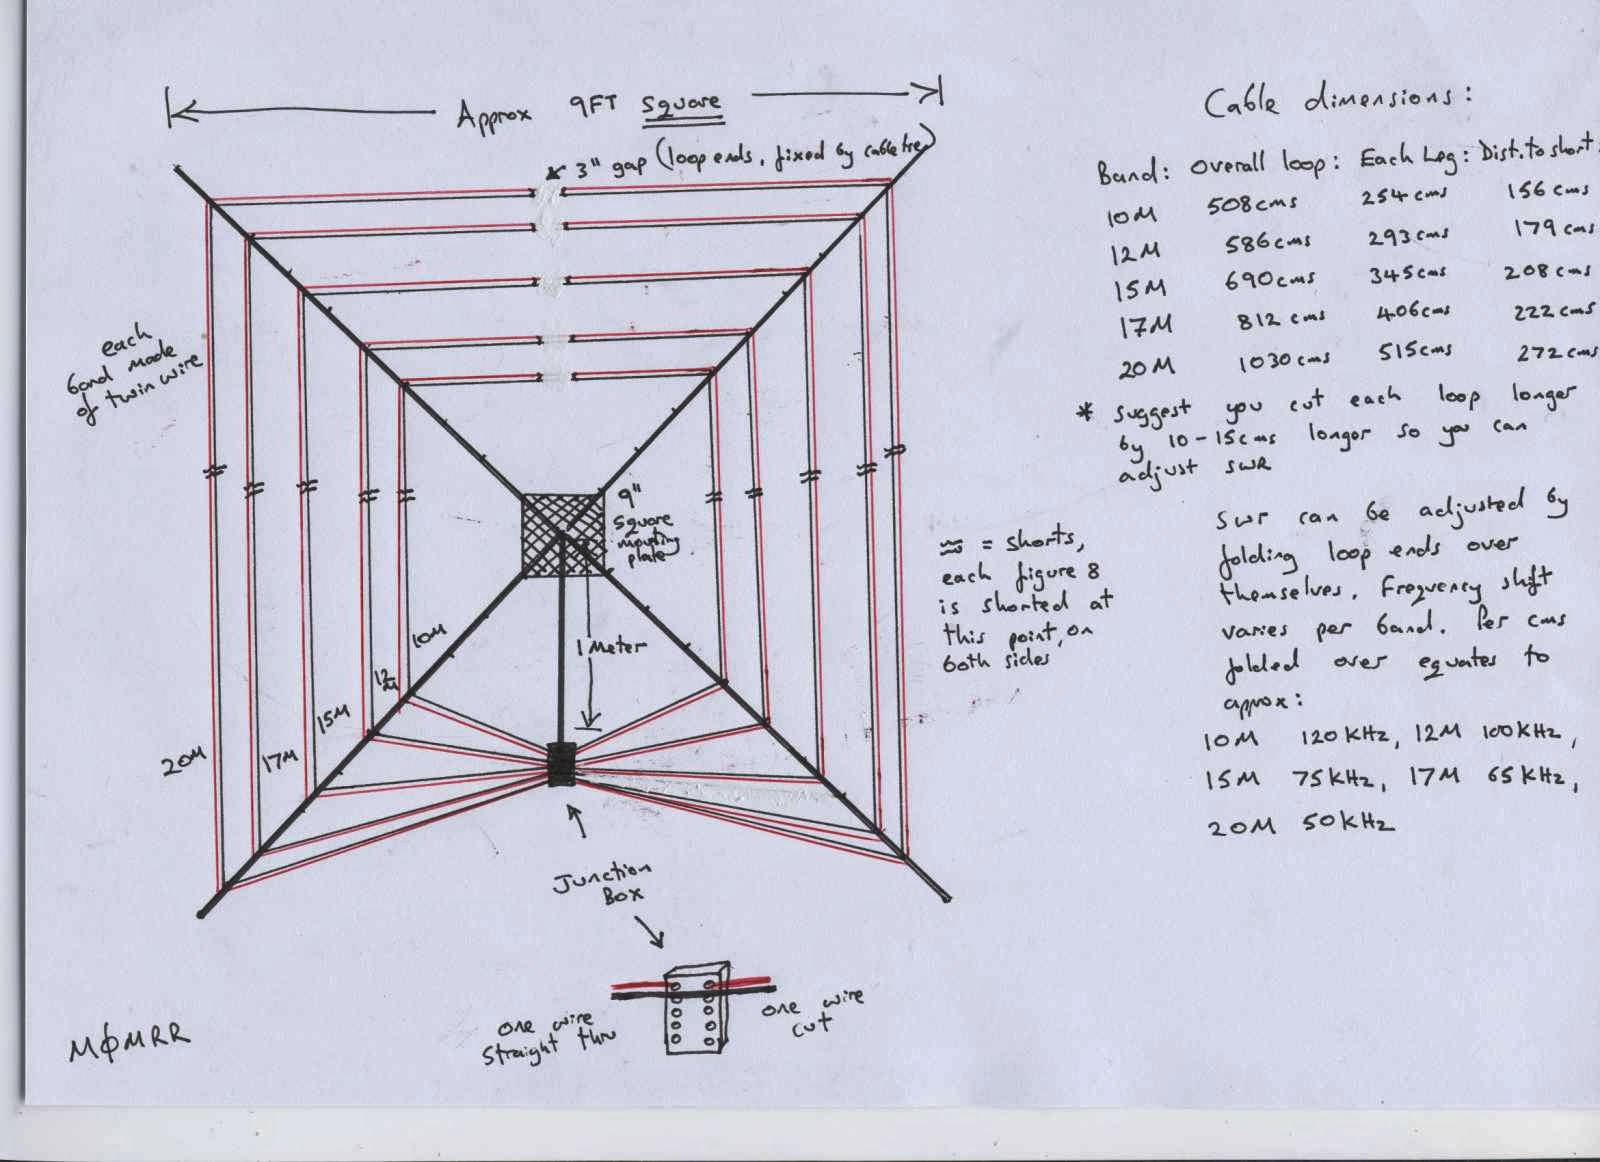 Approx 9FT Square
3" gap (loop ends, fixed by cable tie)
each
band made
of twin wire
9"
Square
mounting
plate
1 Meter
10M
12M
15M
17M
20M
Junction
Box
one wire
straight thru
one wire
cut
MØMRR
≈ = shorts,
each figure 8
is shorted at
this point, on
both sides
Cable dimensions:
Band: Overall loop: Each Leg: Dist. to short:
10M 508cms 254cms 156cms
12M 586cms 293cms 179cms
15M 690cms 345cms 208cms
17M 812cms 406cms 222cms
20M 1030cms 515cms 272cms
* suggest you cut each loop longer
by 10-15cms longer so you can
adjust SWR
SWR can be adjusted by
folding loop ends over
themselves. Frequency shift
varies per band. Per cms
folded over equates to
approx:
10M 120KHz, 12M 100KHz,
15M 75KHz, 17M 65KHz,
20M 50KHz